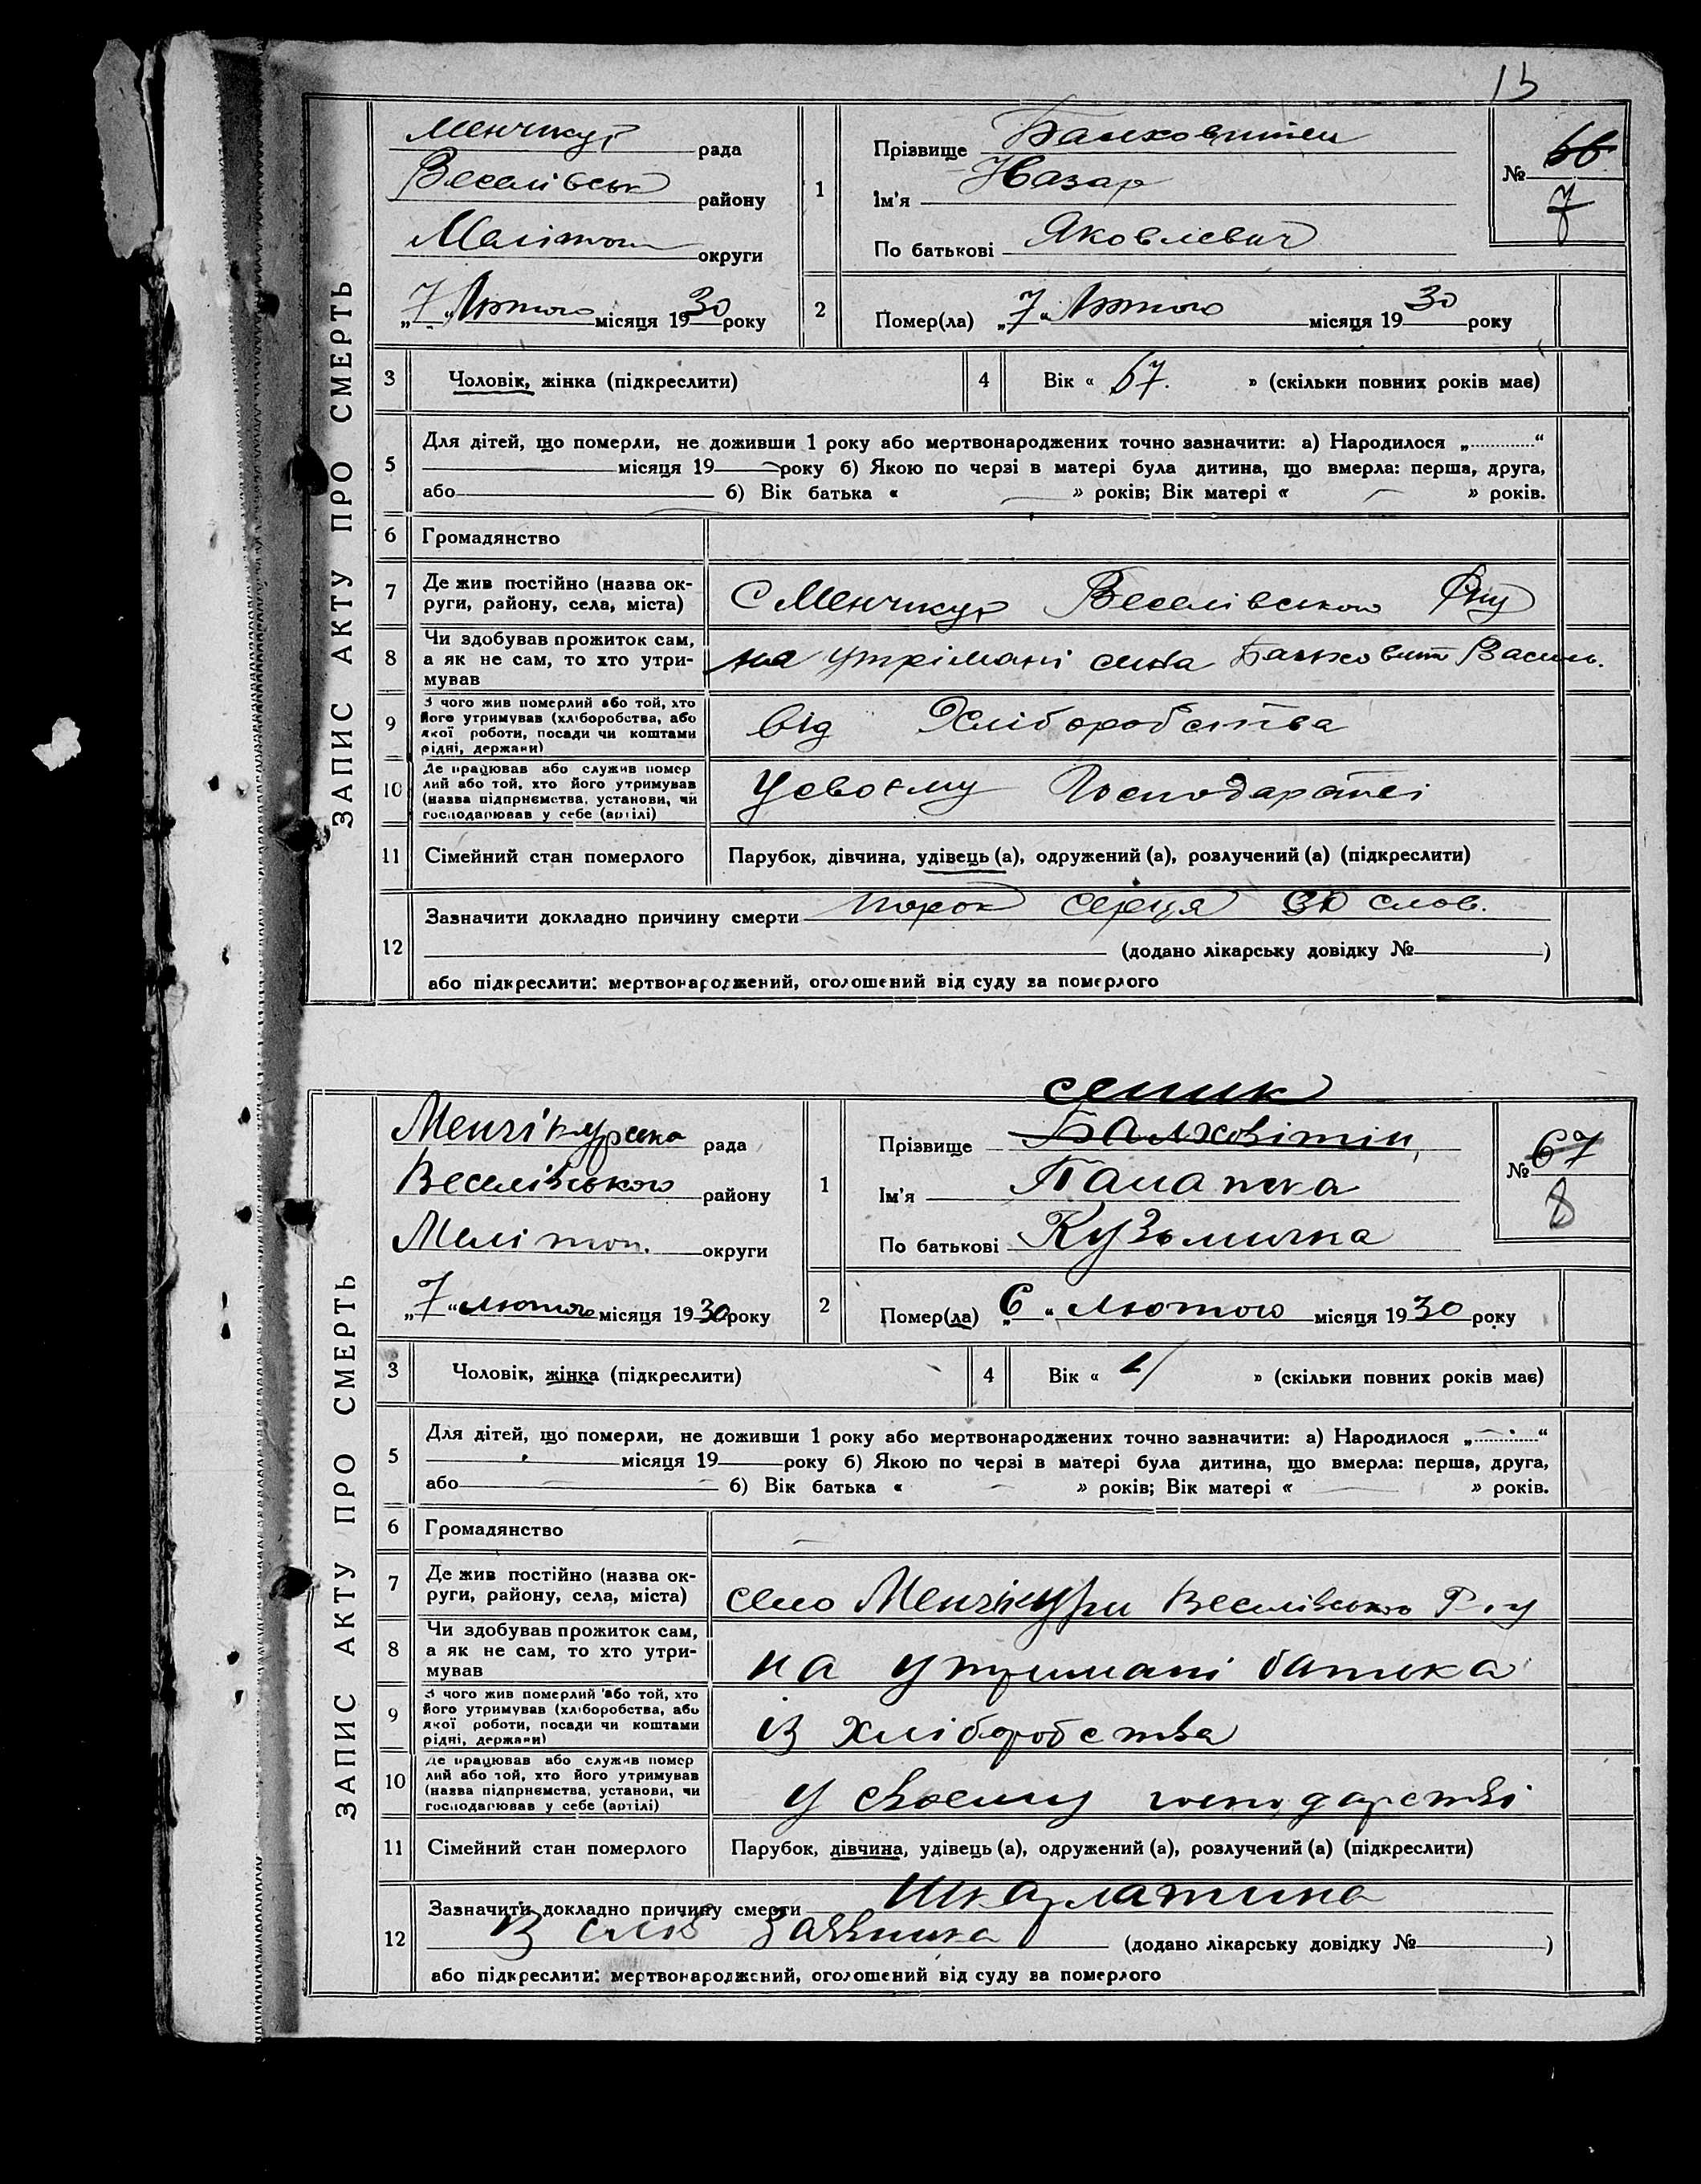 15
ЗАПИС АКТУ ПРО СМЕРТЬ
Менчикур рада
Веселівськ району
Мелітоп округи
„7“ Лютого місяця 1930 року
1
Прізвище Балховитин
Ім'я Назар
По батькові Яковлевич
№ 66
7
2
Помер(ла) „7“ Лютого місяця 1930 року
3 Чоловік, жінка (підкреслити)
4 Вік « 67. » (скільки повних років має)
5 Для дітей, що померли, не доживши 1 року або мертвонароджених точно зазначити: а) Народилося „............“
місяця 19 року б) Якою по черзі в матері була дитина, що вмерла: перша, друга,
або б) Вік батька « » років; Вік матері « » років.
6 Громадянство
7 Де жив постійно (назва ок-
руги, району, села, міста)
С Менчикур Веселівського Рну
8 Чи здобував прожиток сам,
а як не сам, то хто утри-
мував
на утрімані сина Балховит Василь.
9 З чого жив померлий або той, хто
його утримував (хліборобства, або
якої роботи, посади чи коштами
рідні, держави)
від Хліборобства
10 Де працював або служив помер
лий або той, хто його утримував
(назва підприємства, установи, чи
господарював у себе (артілі)
Усвоєму Господарстві
11 Сімейний стан померлого Парубок, дівчина, удівець (а), одружений (а), розлучений (а) (підкреслити)
12 Зазначити докладно причину смерти порок серця зі слов.
(додано лікарську довідку № )
або підкреслити: мертвонароджений, оголошений від суду за померлого
ЗАПИС АКТУ ПРО СМЕРТЬ
Менчікурська рада
Веселівського району
Мелітоп. округи
„7“ лютого місяця 1930 року
1
сепик
Прізвище Балховітін,
Ім'я Палажка
По батькові Кузьмична
№ 67
8
2
Помер(ла) „6“ лютого місяця 1930 року
3 Чоловік, жінка (підкреслити)
4 Вік « » (скільки повних років має)
5 Для дітей, що померли, не доживши 1 року або мертвонароджених точно зазначити: а) Народилося „............“
місяця 19 року б) Якою по черзі в матері була дитина, що вмерла: перша, друга,
або б) Вік батька « » років; Вік матері « » років.
6 Громадянство
7 Де жив постійно (назва ок-
руги, району, села, міста)
село Менчікури Веселівського Р-ну
8 Чи здобував прожиток сам,
а як не сам, то хто утри-
мував
на утримані батька
9 З чого жив померлий або той, хто
його утримував (хліборобства, або
якої роботи, посади чи коштами
рідні, держави)
із хліборобства
10 Де працював або служив помер
лий або той, хто його утримував
(назва підприємства, установи, чи
господарював у себе (артілі)
у своєму господарстві
11 Сімейний стан померлого Парубок, дівчина, удівець (а), одружений (а), розлучений (а) (підкреслити)
12 Зазначити докладно причину смерти Шкарлатина
З слів Заявника (додано лікарську довідку № )
або підкреслити: мертвонароджений, оголошений від суду за померлого